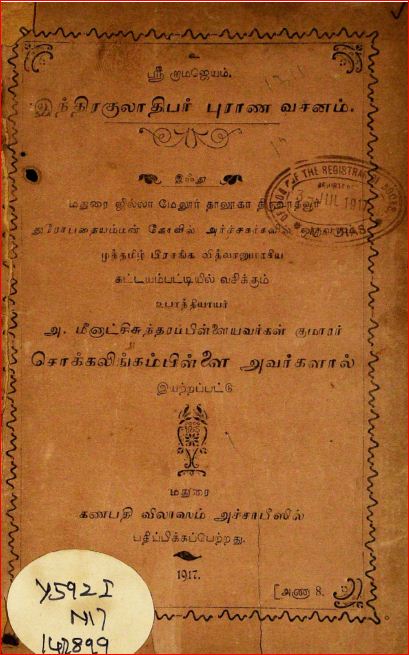 உ
ஸ்ரீ ராமஜெயம்.
இந்திரகுலாதிபர் புராண வசனம்.
இஃது
மதுரை ஜில்லா மேலூர் தாலூகா
துரோபதையம்மன் கோவில் அர்ச்சகர்களில் ஒருவரும்
முத்தமிழ் பிரசங்க வித்வானுமாகிய
சுட்டயம்பட்டியில் வசிக்கும்
உபாத்தியாயர்
அ. மீனாட்சிசுந்தரப்பிள்ளையவர்கள் குமாரர்
சொக்கலிங்கம்பிள்ளை அவர்களால்
இயற்றப்பட்டு
மதுரை
கணபதி விலாஸம் அச்சாபீஸில்
பதிப்பிக்கப்பெற்றது.
1917.
[அணா 8.
OF THE REGISTRAR OF BOOKS
JUL 1917
Y592I
N17
142899